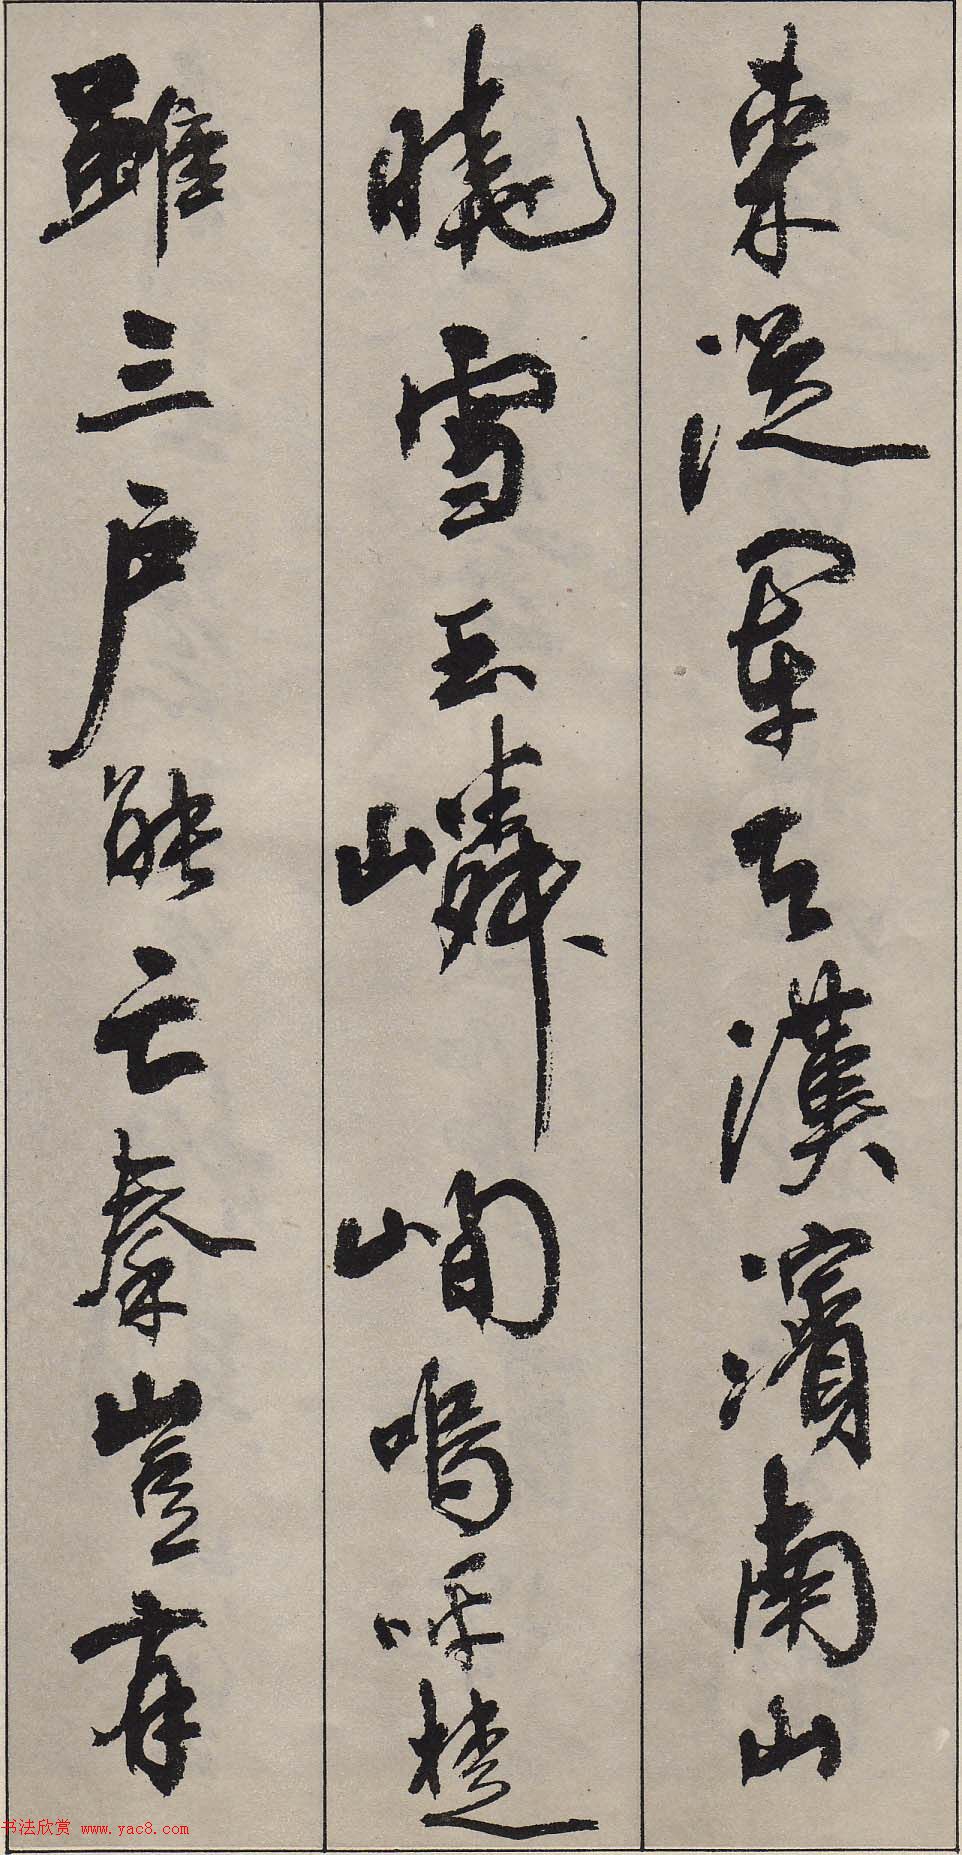 來從軍天漢濱南山
曉雪玉嶙峋嗚呼楚
雖三戶能亡秦豈有
书法欣赏 www.yac8.com